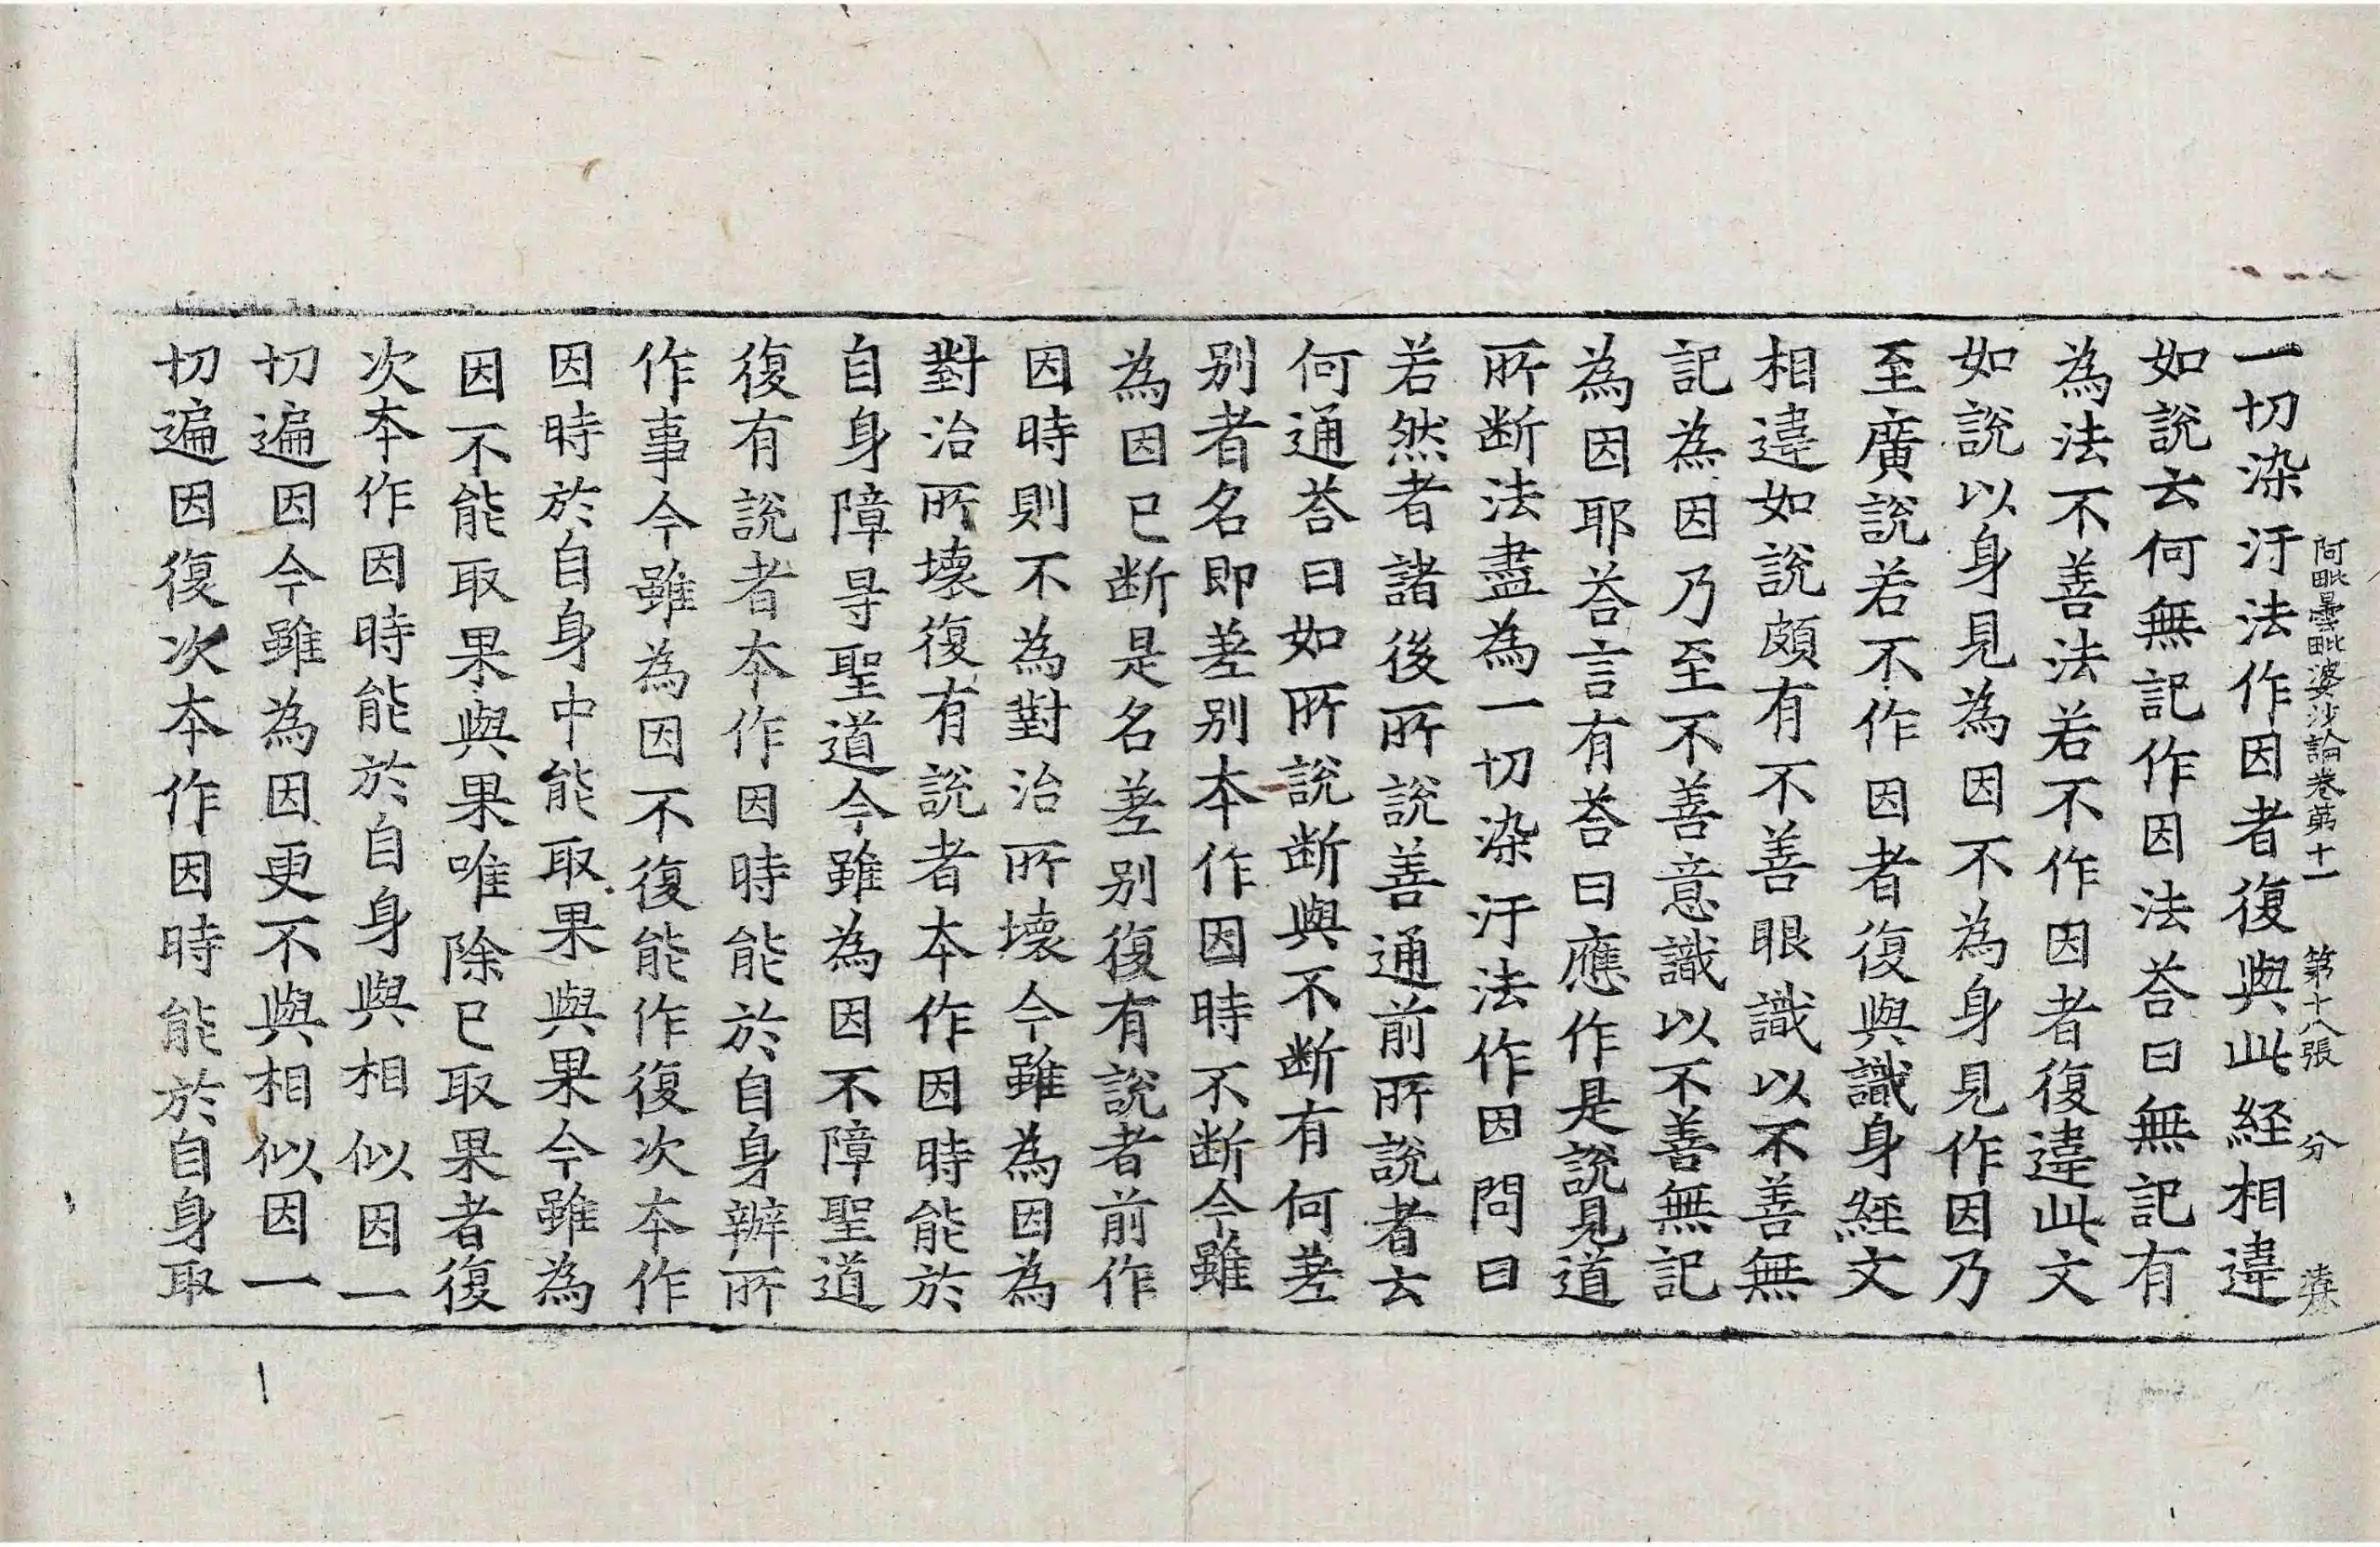 阿毗曇毗婆沙論卷第十一 第十八張 分
一切染汙法作因者復與此經相違
如說云何無記作因法荅曰無記有
為法不善法若不作因者復違此文
如說以身見為因不為身見作因乃
至廣說若不作因者復與識身經文
相違如說頗有不善眼識以不善無
記為因乃至不善意識以不善無記
為因耶荅言有荅曰應作是說見道
所断法盡為一切染汙法作因問曰
若然者諸後所說善通前所說者云
何通荅曰如所說断與不断有何差
別者名即差別本作因時不断今雖
為因已断是名差別復有說者前作
因時則不為對治所壞今雖為因為
對治所壞復有說者本作因時能於
自身障㝵聖道今雖為因不障聖道
復有說者本作因時能於自身辦所
作事今雖為因不復能作復次本作
因時於自身中能取果與果今雖為
因不能取果與果唯除已取果者復
次本作因時能於自身與相似因一
切遍因今雖為因更不與相似因一
切遍因復次本作因時能於自身取